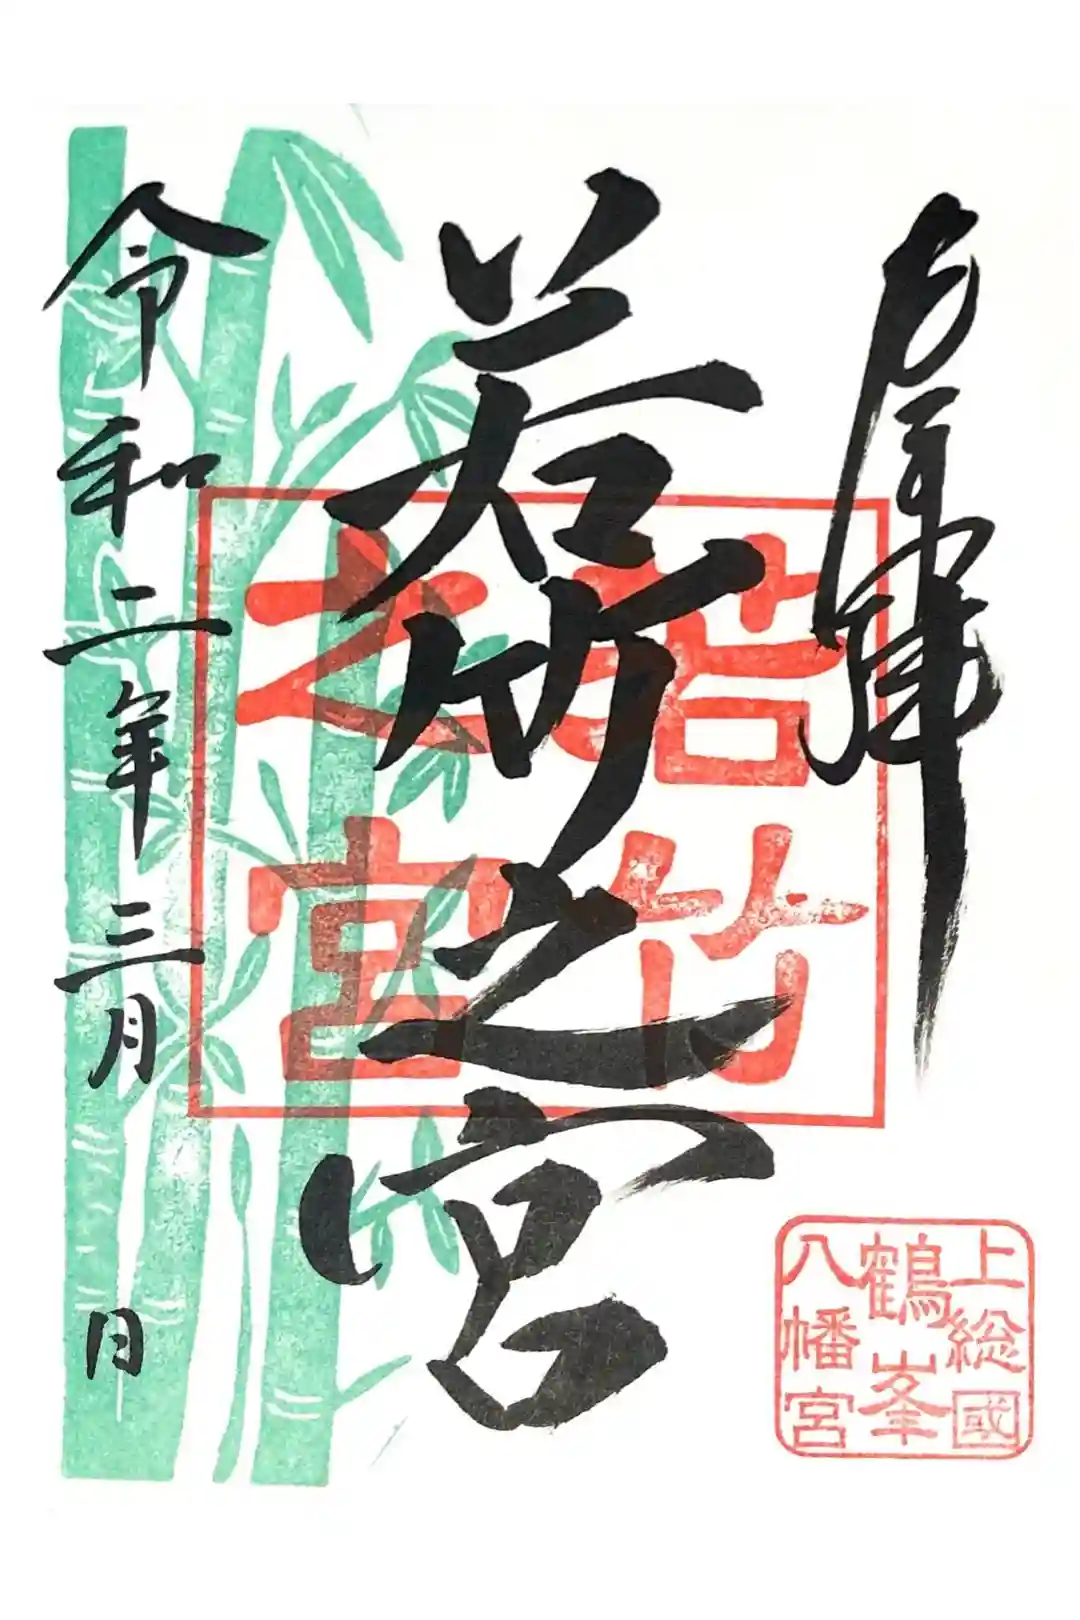 奉拝
若竹之宮
若竹
之宮
令和二年三月 日
上総國
鶴峯
八幡宮